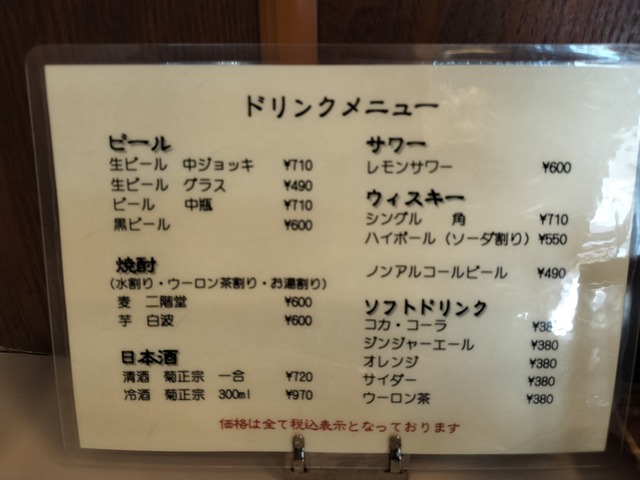 ドリンクメニュー
ビール
生ビール 中ジョッキ ¥710
生ビール グラス ¥490
ビール 中瓶 ¥710
黒ビール ¥600
焼酎
(水割り・ウーロン茶割り・お湯割り)
麦 二階堂 ¥600
芋 白波 ¥600
日本酒
清酒 菊正宗 一合 ¥720
冷酒 菊正宗 300ml ¥970
サワー
レモンサワー ¥600
ウィスキー
シングル 角 ¥710
ハイボール(ソーダ割り) ¥550
ノンアルコールビール ¥490
ソフトドリンク
コカ・コーラ
ジンジャーエール ¥380
オレンジ ¥380
サイダー ¥380
ウーロン茶 ¥380
価格は全て税込表示となっております